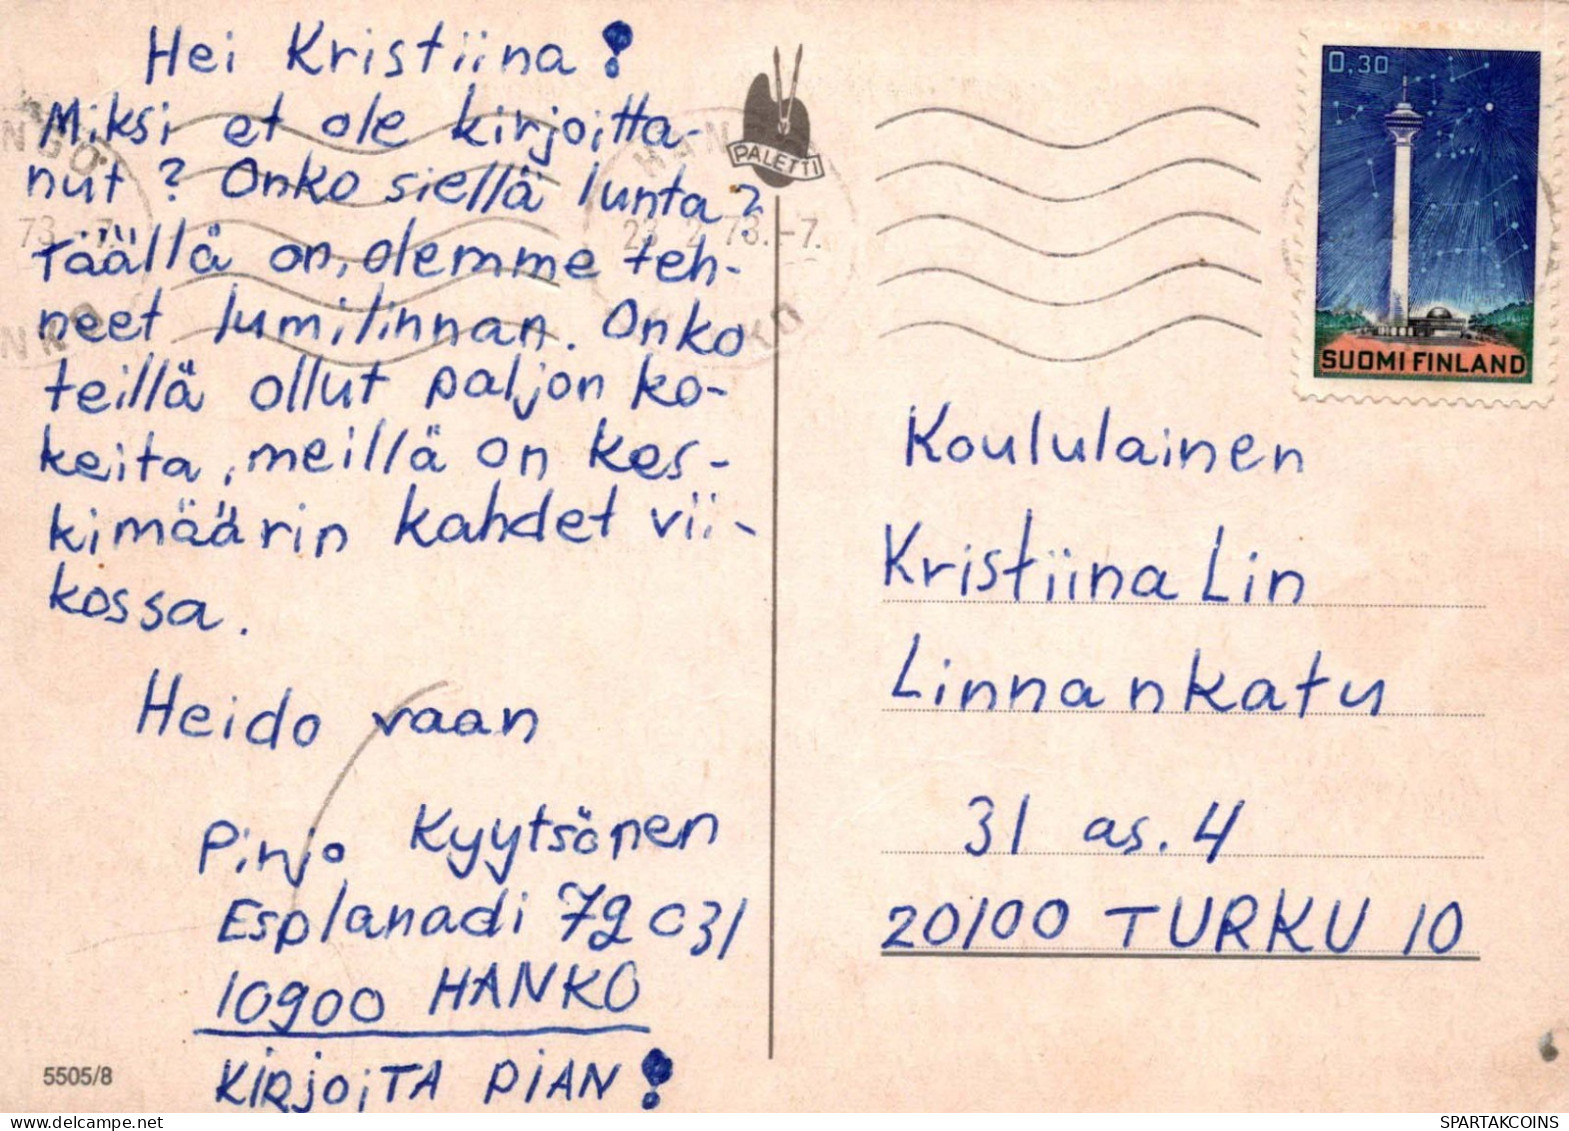 Hei Kristiina!
Miksi et ole kirjoitta-
nut? Onko siellä lunta?
Täällä on, olemme teh-
neet lumilinnan. Onko
teillä ollut paljon ko-
keita, meillä on kes-
kimäärin kahdet vii-
kossa.
Heido vaan
Pinjo Kyytsönen
Esplanadi 72 C31
10900 HANKO
KIRJOITA PIAN!
5505/8
PALETTI
23.2.73.-7.
0,30
SUOMI FINLAND
Koululainen
Kristiina Lin
Linnankatu
31 as. 4
20100 TURKU 10
SPARTAKCOINS.COM
www.delcampe.net